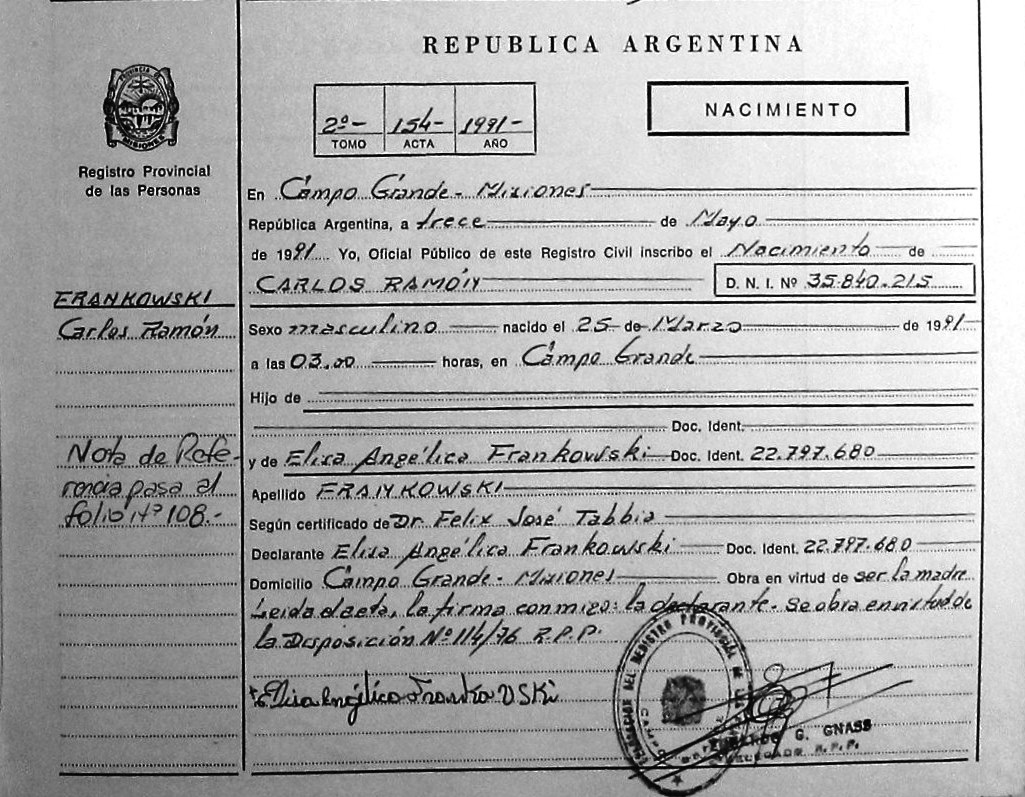 REPUBLICA ARGENTINA
PROVINCIA DE
MISIONES
Registro Provincial
de las Personas
2º- 154- 1991-
TOMO ACTA AÑO
NACIMIENTO
En Campo Grande - Misiones
República Argentina, a trece de Mayo
de 1991 Yo, Oficial Público de este Registro Civil inscribo el Nacimiento de
CARLOS RAMÓN D. N. I. Nº 35.840.215
FRANKOWSKI
Carlos Ramón
Sexo masculino nacido el 25 de Marzo de 1991
a las 03.00 horas, en Campo Grande
Hijo de
Doc. Ident.
y de Elisa Angélica Frankowski Doc. Ident. 22.797.680
Nota de Refe-
rencia pasa al
folio Nº 108.-
Apellido FRANKOWSKI
Según certificado de Dr. Felix José Tabbia
Declarante Elisa Angélica Frankowski Doc. Ident. 22.797.680
Domicilio Campo Grande - Misiones Obra en virtud de ser la madre
Leida el acta, la firma conmigo: la declarante. Se obra en virtud de
la Disposición Nº 114/76 R.P.P.
Elisa Angélica Frankowski
DEL REGISTRO PROVINCIAL DE LAS
G. GNASS
DELEGADO R.P.P.